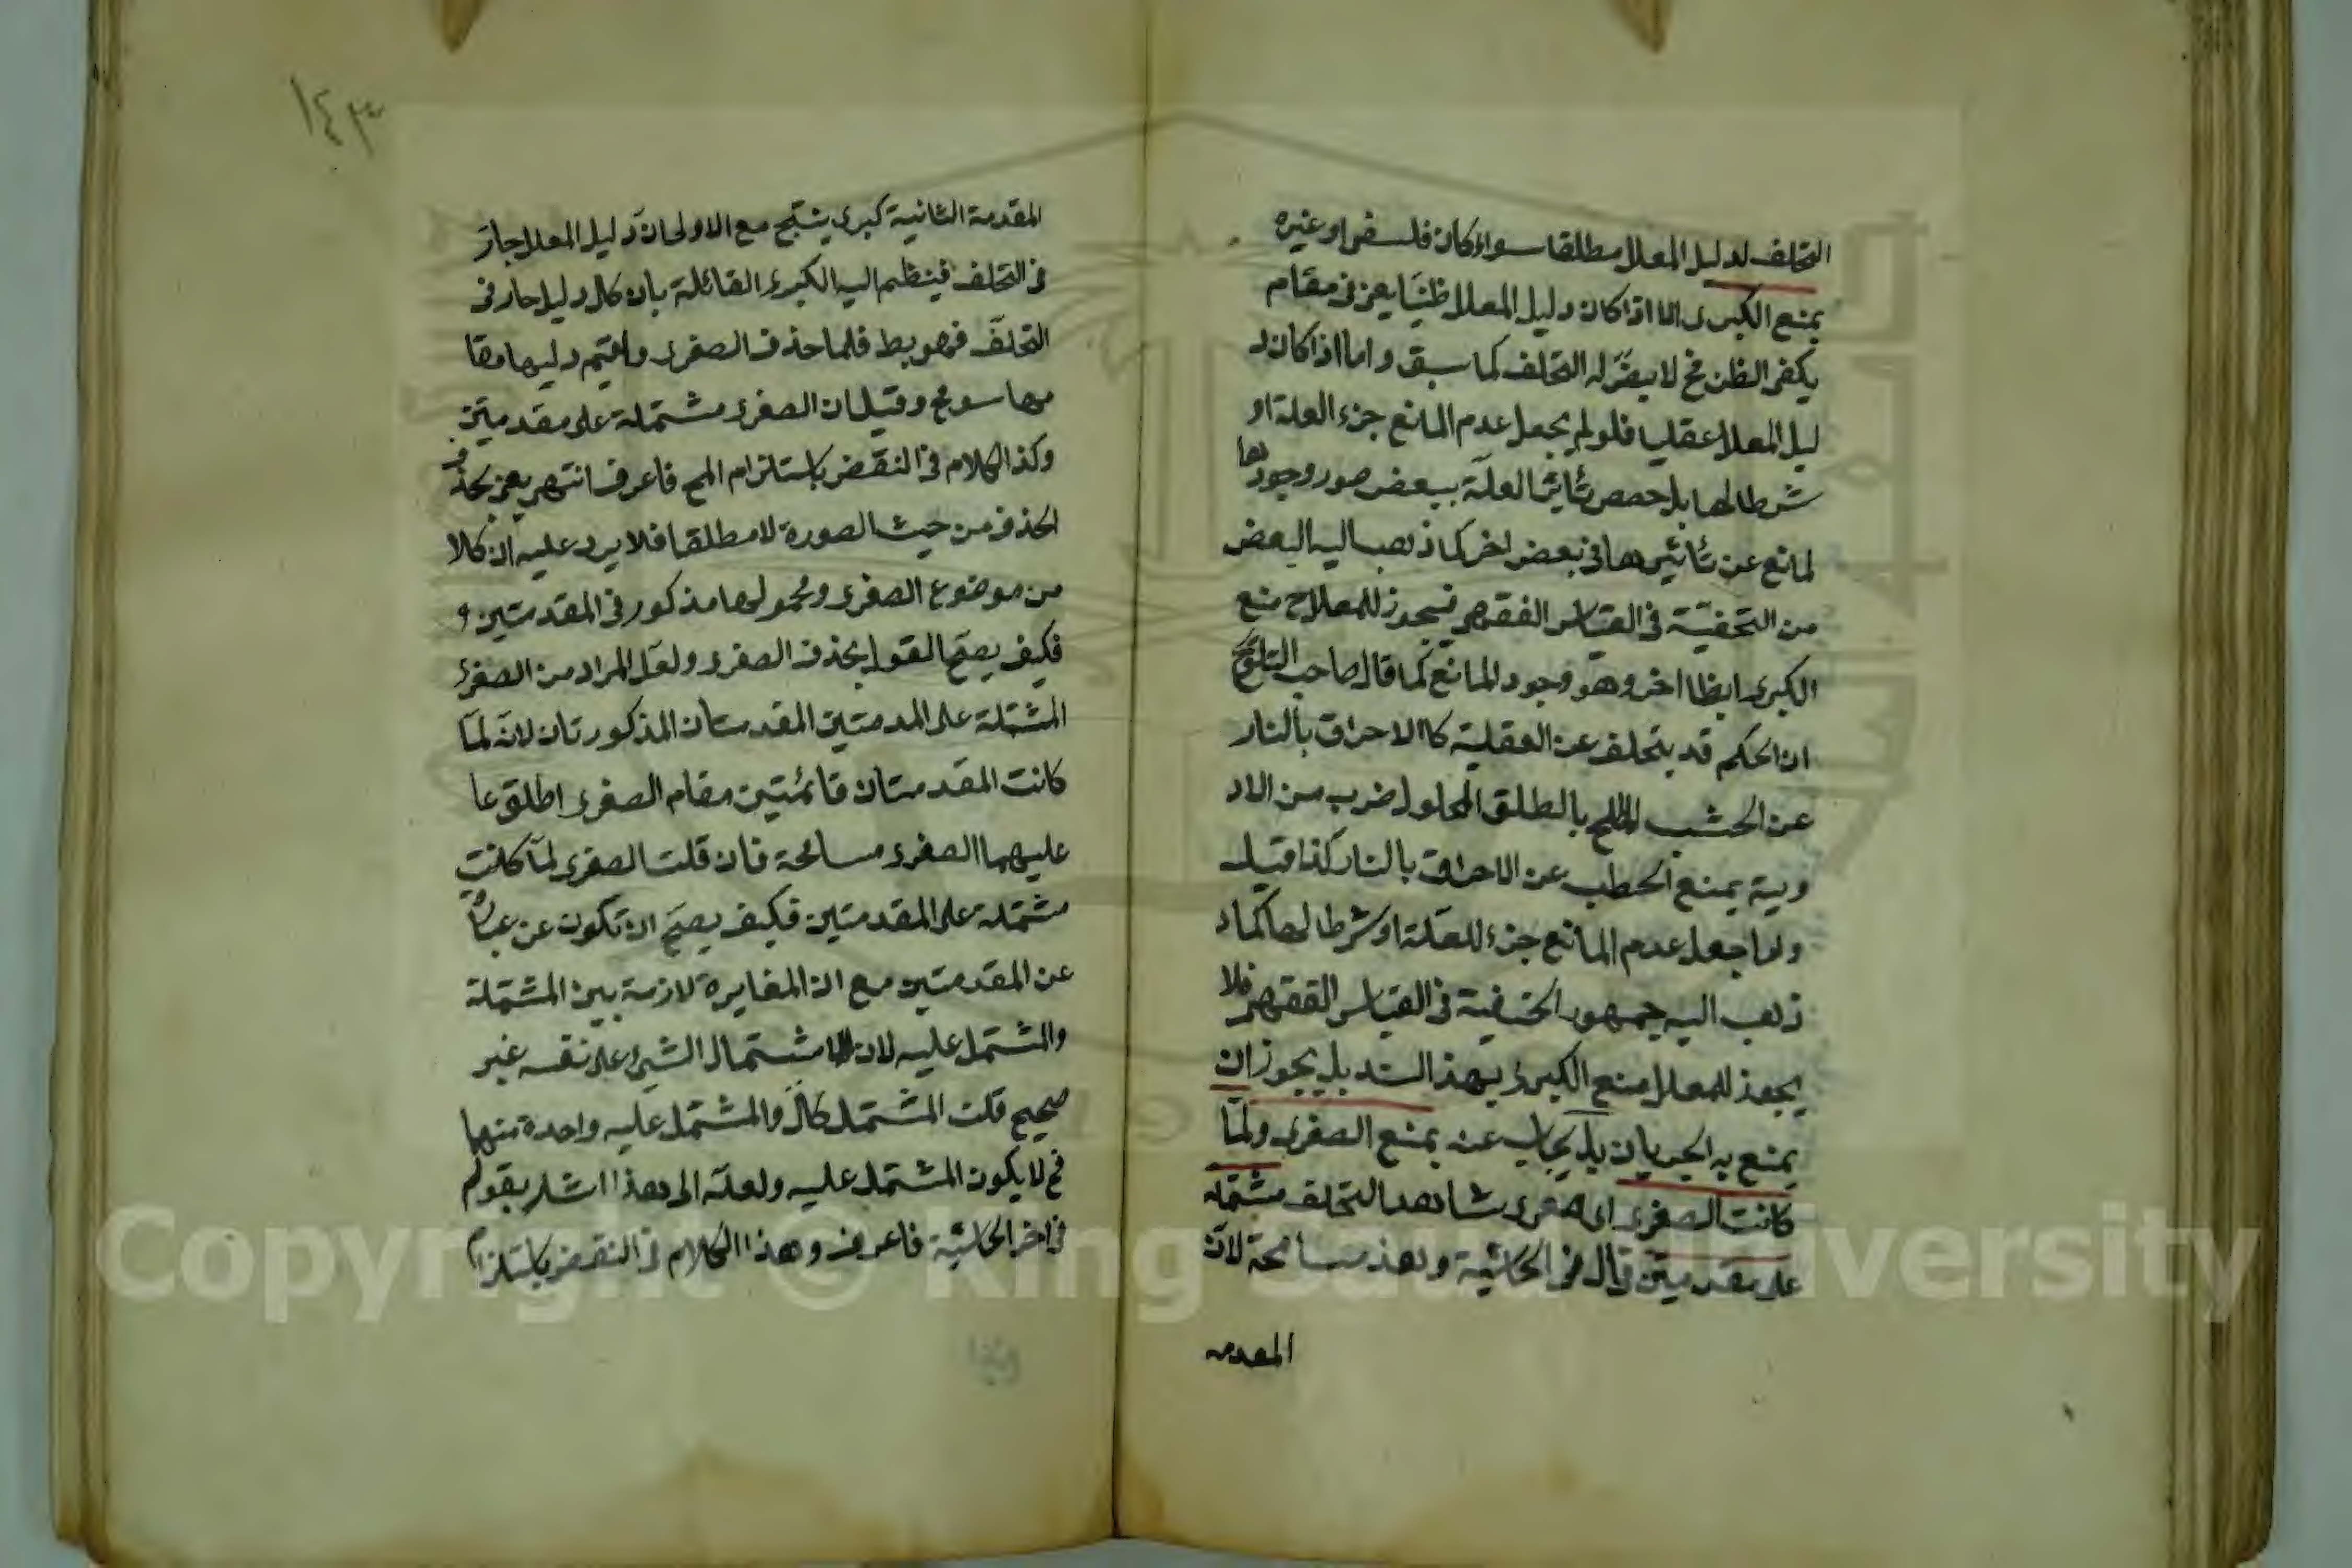 التخلف لدليل المعلل مطلقا سواء كان فلسفى او غيره
يمنع الكبرى الا اذا كان دليل المعلل ظنيا يعنى فى مقام
يكفى الظن فح لا يضر له التخلف كما سبق واما اذا كان د
ليل المعلل عقليا فلو لم يجعل عدم المانع جزء العلة او
شرطا لها بل خصص تأثير العلة ببعض صور وجودها
لمانع عن تأثيرها فى بعض اخر كما ذهب اليه البعض
من التحفية فى القياس الفقهى فيجوز للمعلل ح منع
الكبرى ايظا اخر وهو وجود المانع كما قال صاحب التلويح
ان الحكم قد يتخلف عن العقلية كاالاحراق بالنار
عن الخشب الملطخ بالطلق المحلول ضرب من الاد
وية يمنع الحطب عن الاحراق بالنار كذا قيل
ولما جعل عدم المانع جزء للعلة او شرطا لها كما
ذهب اليه جمهور الحنفية فى القياس الفقهى فلا
يجوز للمعلل منع الكبرى بهذ السند بل يجوز ان
يمنع به الجريان بل يجاب عنه بمنع الصغرى ولما
كانت الصغرى اى صغرى شاهد التخلف مشتملة
على مقدمتين قال فى الحاشية وهذ مسامحة لان
المقدمة
١٤٣
المقدمة الثانية كبرى ينتج مع الاولى ان دليل المعلل جار
فى التخلف فينظم اليه الكبرى القائلة بان كل دليل جار فى
التخلف فهو بط فلما حذف الصغرى واقيم دليها مقا
مها سومح وقيل ان الصغرى مشتملة على مقدمتين
وكذا الكلام فى النقض باستلزام المح فاعرف انتهى يعنى بحذف
الحذف من حيث الصورة لا مطلقا فلا يرد عليه ان كلا
من موضوع الصغرى ومحمولها مذكور فى المقدمتين و
فكيف يصح القول بحذف الصغرى ولعل المراد من الصغرى
المشتملة على المدمتين المقدمتان المذكورتان لانه لما
كانت المقدمتان قائمتين مقام الصغرى اطلق عا
عليهما الصغرى مسامحة فان قلت الصغرى لما كانت
مشتملة على المقدمتين فكيف يصح ان تكون عن عبارة
عن المقدمتين مع ان المغايرة لازمة بين المشتملة
والمشتمل عليه لان اشتمال الشيئ على نفسه غير
صحيح قلت المشتمل كل والمشتمل عليه واحدة منهما
فح لا يكون المشتمل عليه ولعله الى هذا اشار بقوله
فى اخر الحاشية فاعرف وهذا الكلام فى النقض باستلزام
Copyright © King Saud University